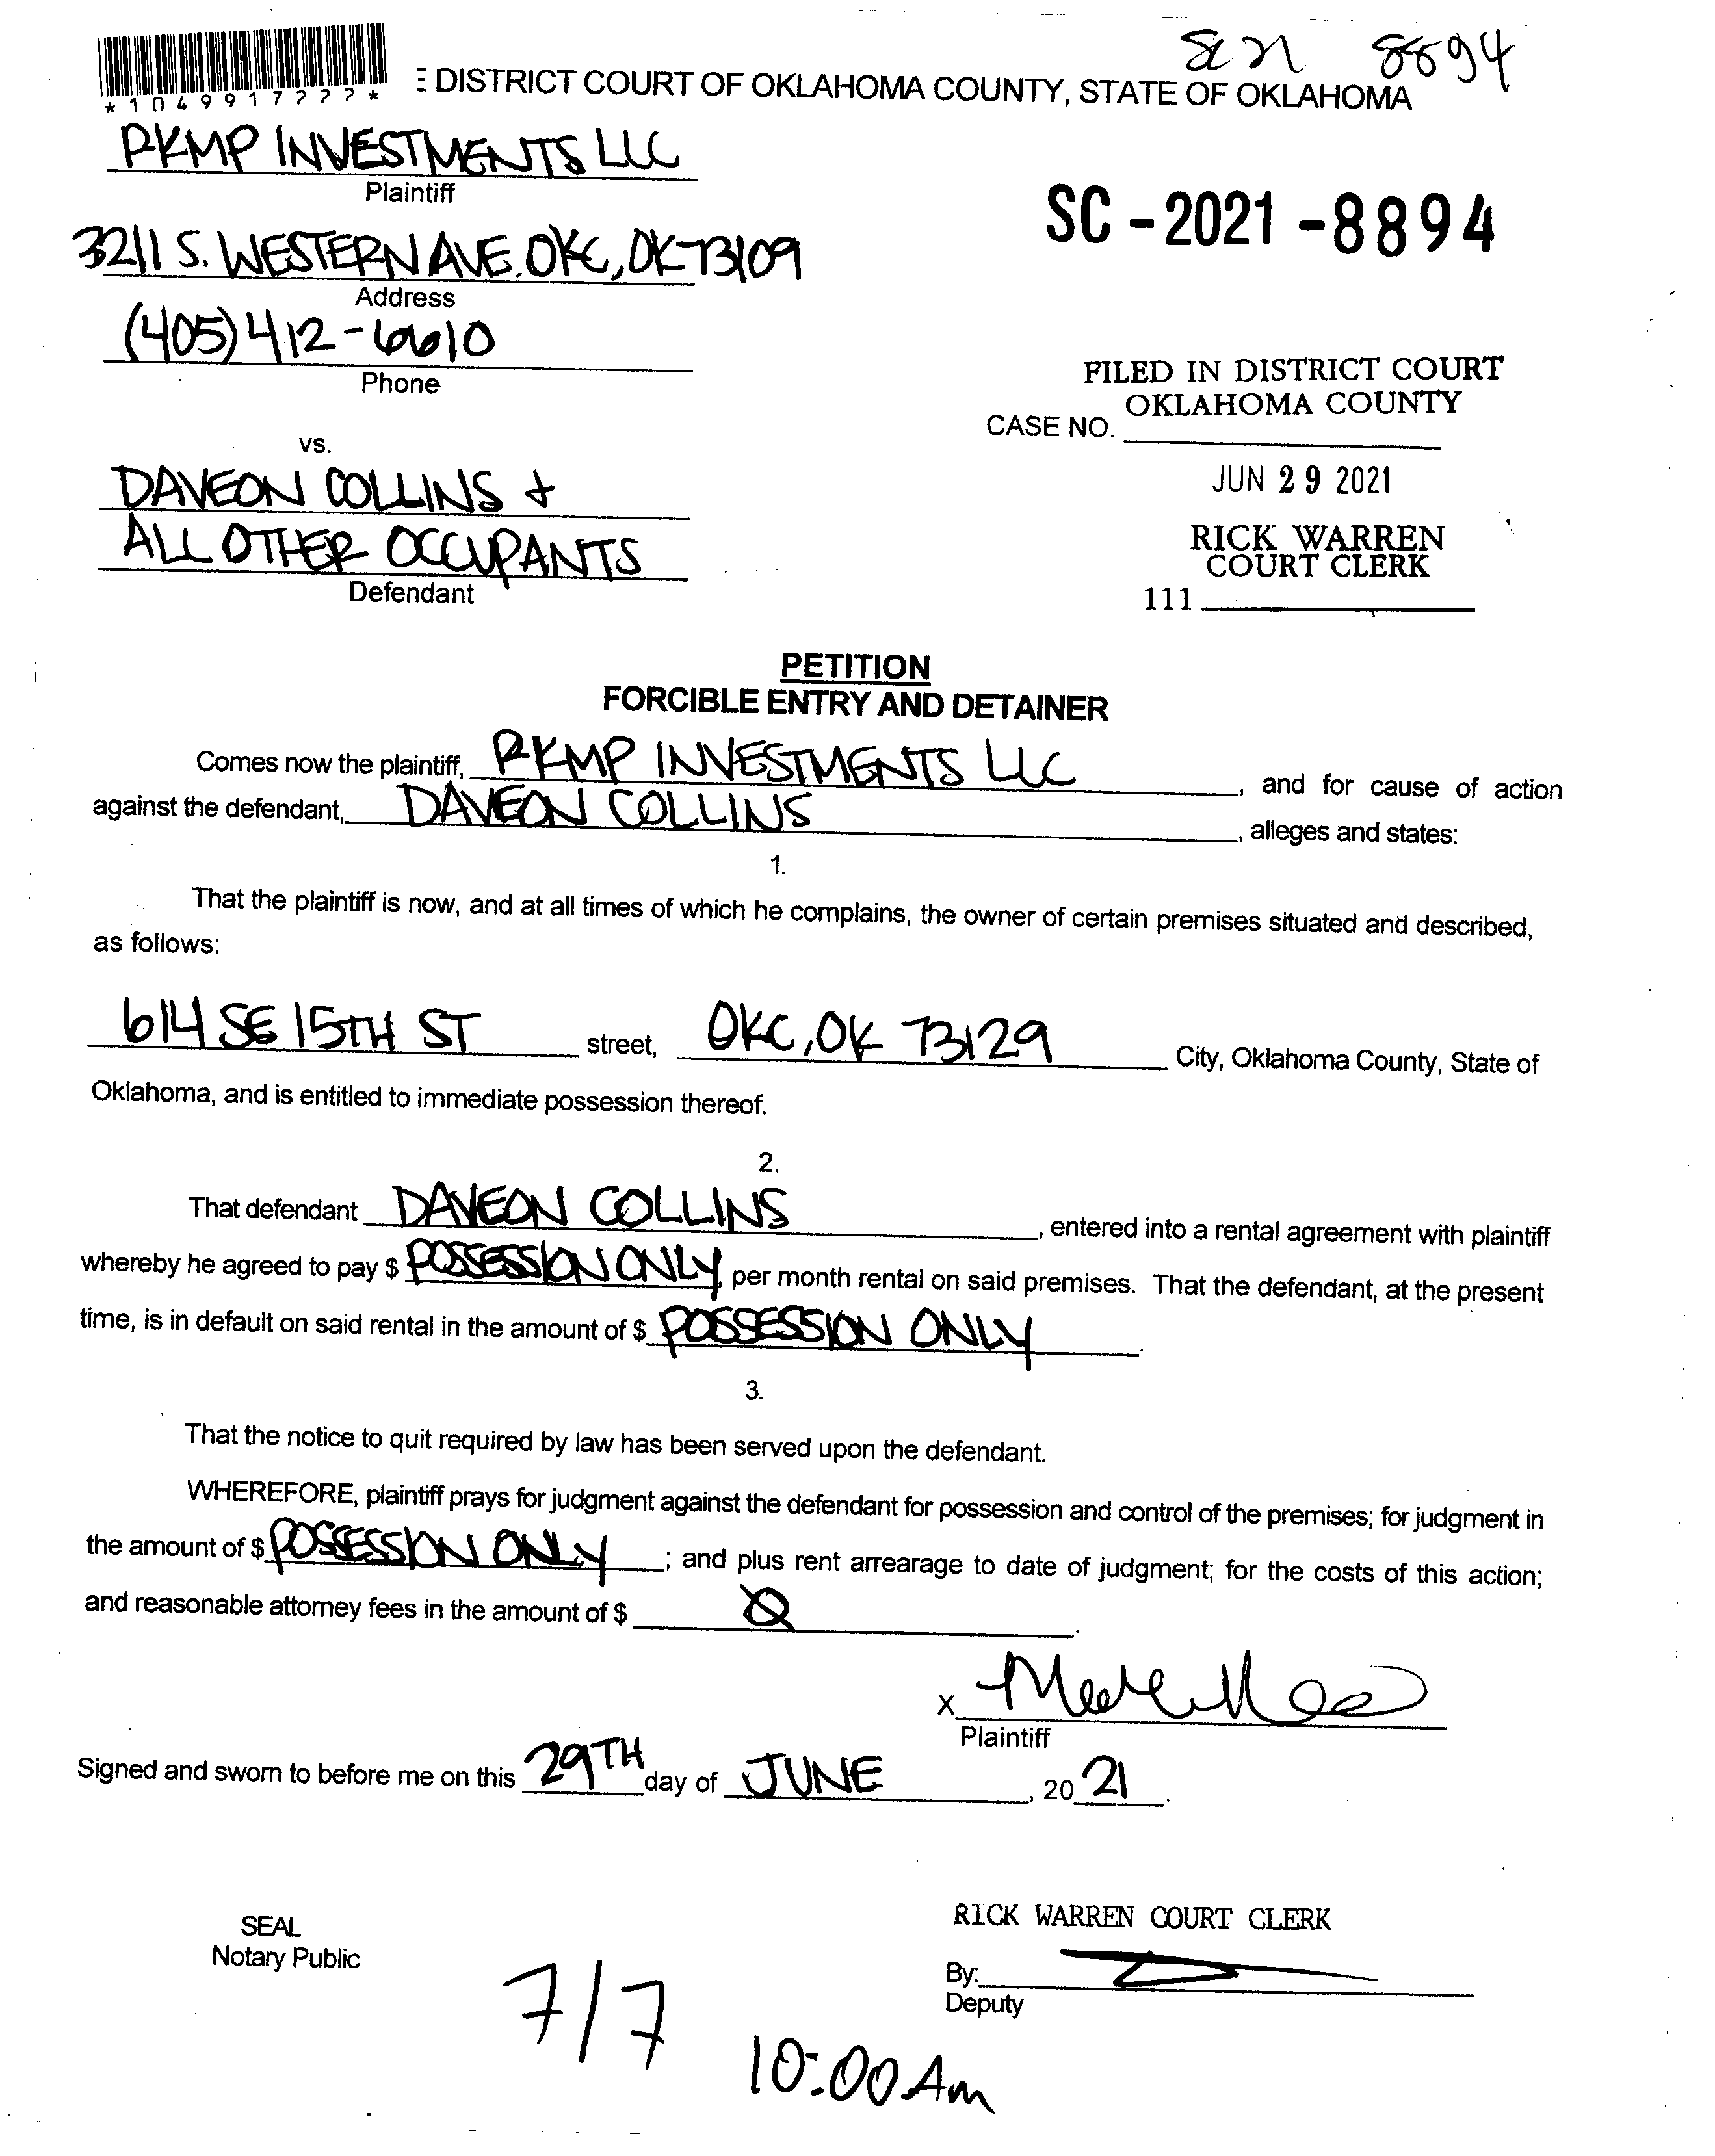 8894
*1049917???*
DISTRICT COURT OF OKLAHOMA COUNTY, STATE OF OKLAHOMA
PKMP INVESTMENTS LLC
Plaintiff
SC-2021-8894
3211 S. WESTERN AVE. OKC, OK 73109
Address
(405) 412-6610
Phone
FILED IN DISTRICT COURT
OKLAHOMA COUNTY
CASE NO.
vs.
JUN 29 2021
DAVEON COLLINS +
ALL OTHER OCCUPANTS
Defendant
RICK WARREN
COURT CLERK
111
PETITION
FORCIBLE ENTRY AND DETAINER
Comes now the plaintiff, PKMP INVESTMENTS LLC, and for cause of action
against the defendant, DAVEON COLLINS, alleges and states:
1.
That the plaintiff is now, and at all times of which he complains, the owner of certain premises situated and described,
as follows:
614 SE 15TH ST street, OKC, OK 73129 City, Oklahoma County, State of
Oklahoma, and is entitled to immediate possession thereof.
2.
That defendant DAVEON COLLINS, entered into a rental agreement with plaintiff
whereby he agreed to pay $ POSSESSION ONLY per month rental on said premises. That the defendant, at the present
time, is in default on said rental in the amount of $ POSSESSION ONLY.
3.
That the notice to quit required by law has been served upon the defendant.
WHEREFORE, plaintiff prays for judgment against the defendant for possession and control of the premises; for judgment in
the amount of $ POSSESSION ONLY; and plus rent arrearage to date of judgment; for the costs of this action;
and reasonable attorney fees in the amount of $ Ø.
X
Plaintiff
Signed and sworn to before me on this 29TH day of JUNE, 20 21.
SEAL
Notary Public
RICK WARREN COURT CLERK
By:
Deputy
7/7
10:00 Am